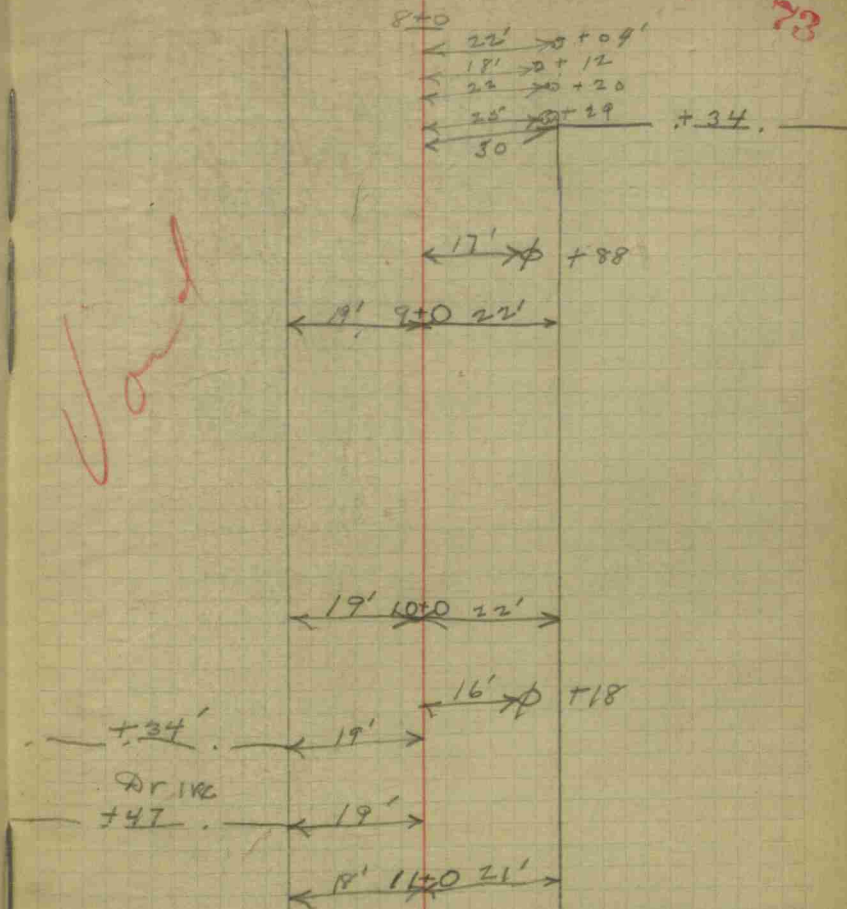 73
8+0
22' +04'
18' +12
22 +20
25 +29
30 +34
17' +88
19' 9+0 22'
Void
19' 10+0 22'
16' +18
+34' 19'
Drive
+47 19'
18' 11+0 21'